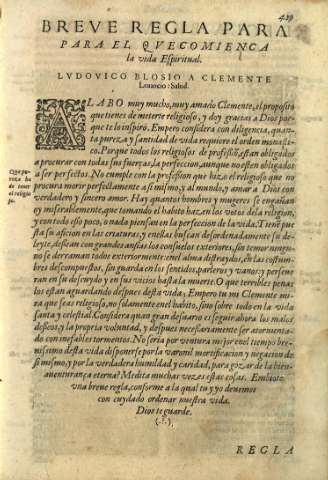 429
BREVE REGLA PARA
PARA EL QVE COMIENCA
la vida Espiritual.
LVDOVICO BLOSIO A CLEMENTE
Louancio: Salud.
ALABO muy mucho, muy amado Clemente, el proposito
que tienes de meterte religioso, y doy gracias a Dios por
que te lo inspirò. Empero considera con diligencia, quan
ta pureza y santidad de vida requiere el orden monasti
co. Porque todos los religiosos de profession, estan obligados
a procurar con todas sus fuerças, la perfeccion, aunque no esten obligados
a ser perfectos. No cumple con la profession que haze el religioso que no
procura morir perfectamente a si mismo, y al mundo, y amar a Dios con
verdadero y sincero amor. Hay quantos hombres y mugeres se engañan
oy miserablemente, que tomando el habito hazen los votos de la religion,
y con todo eso poco, o nada piensan en la perfeccion de la vida. Tiene pue
sta su aficion en las criaturas, y en ellas buscan desordenadamente su de
leyte, desean con grandes ansias los consuelos exteriores, sin temor ningu
no se derraman todos exteriormente: en el alma distraydos, en las costum
bres descompuestos, sin guarda en los sentidos, parleros y vanos: y perseue
ran en su descuydo y en sus vicios hasta la muerte. O que terribles penas
los estan aguardando despues desta vida. Empero tu mi Clemente mi
ra que seas religioso, no solamente en el habito, sino sobre todo en la vida
santa y celestial. Considera quan gran desuario es seguir ahora los malos
desseos, y la propria voluntad, y despues necesariamente ser atormenta
do con inefables tormentos. No seria por ventura mejor en el tiempo bre
uissimo desta vida disponerse por la varonil mortificacion y negacion de
si mismo, y por la verdadera humildad y caridad, para gozar de la bien
auenturança eterna? Medita muchas vezes estas cosas. Embiote
vna breue regla, conforme a la qual tu y yo deuemos
con cuydado ordenar nuestra vida.
Dios te guarde.
(.?.)
REGLA